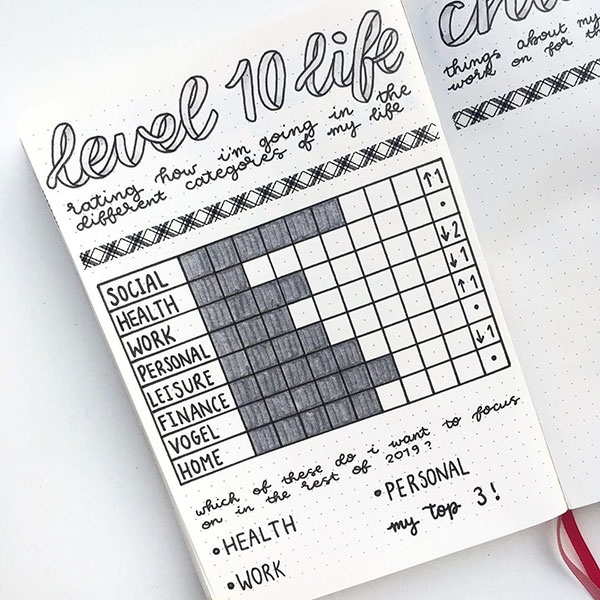 level 10 life
rating how i'm going in the
different categories of my life
SOCIAL ↑1
HEALTH •
WORK ↓2
PERSONAL ↓1
LEISURE ↑1
FINANCE •
VOGEL ↓1
HOME •
which of these do i want to focus
on in the rest of 2019?
• HEALTH
• WORK
• PERSONAL
my top 3!
things about my
work on for